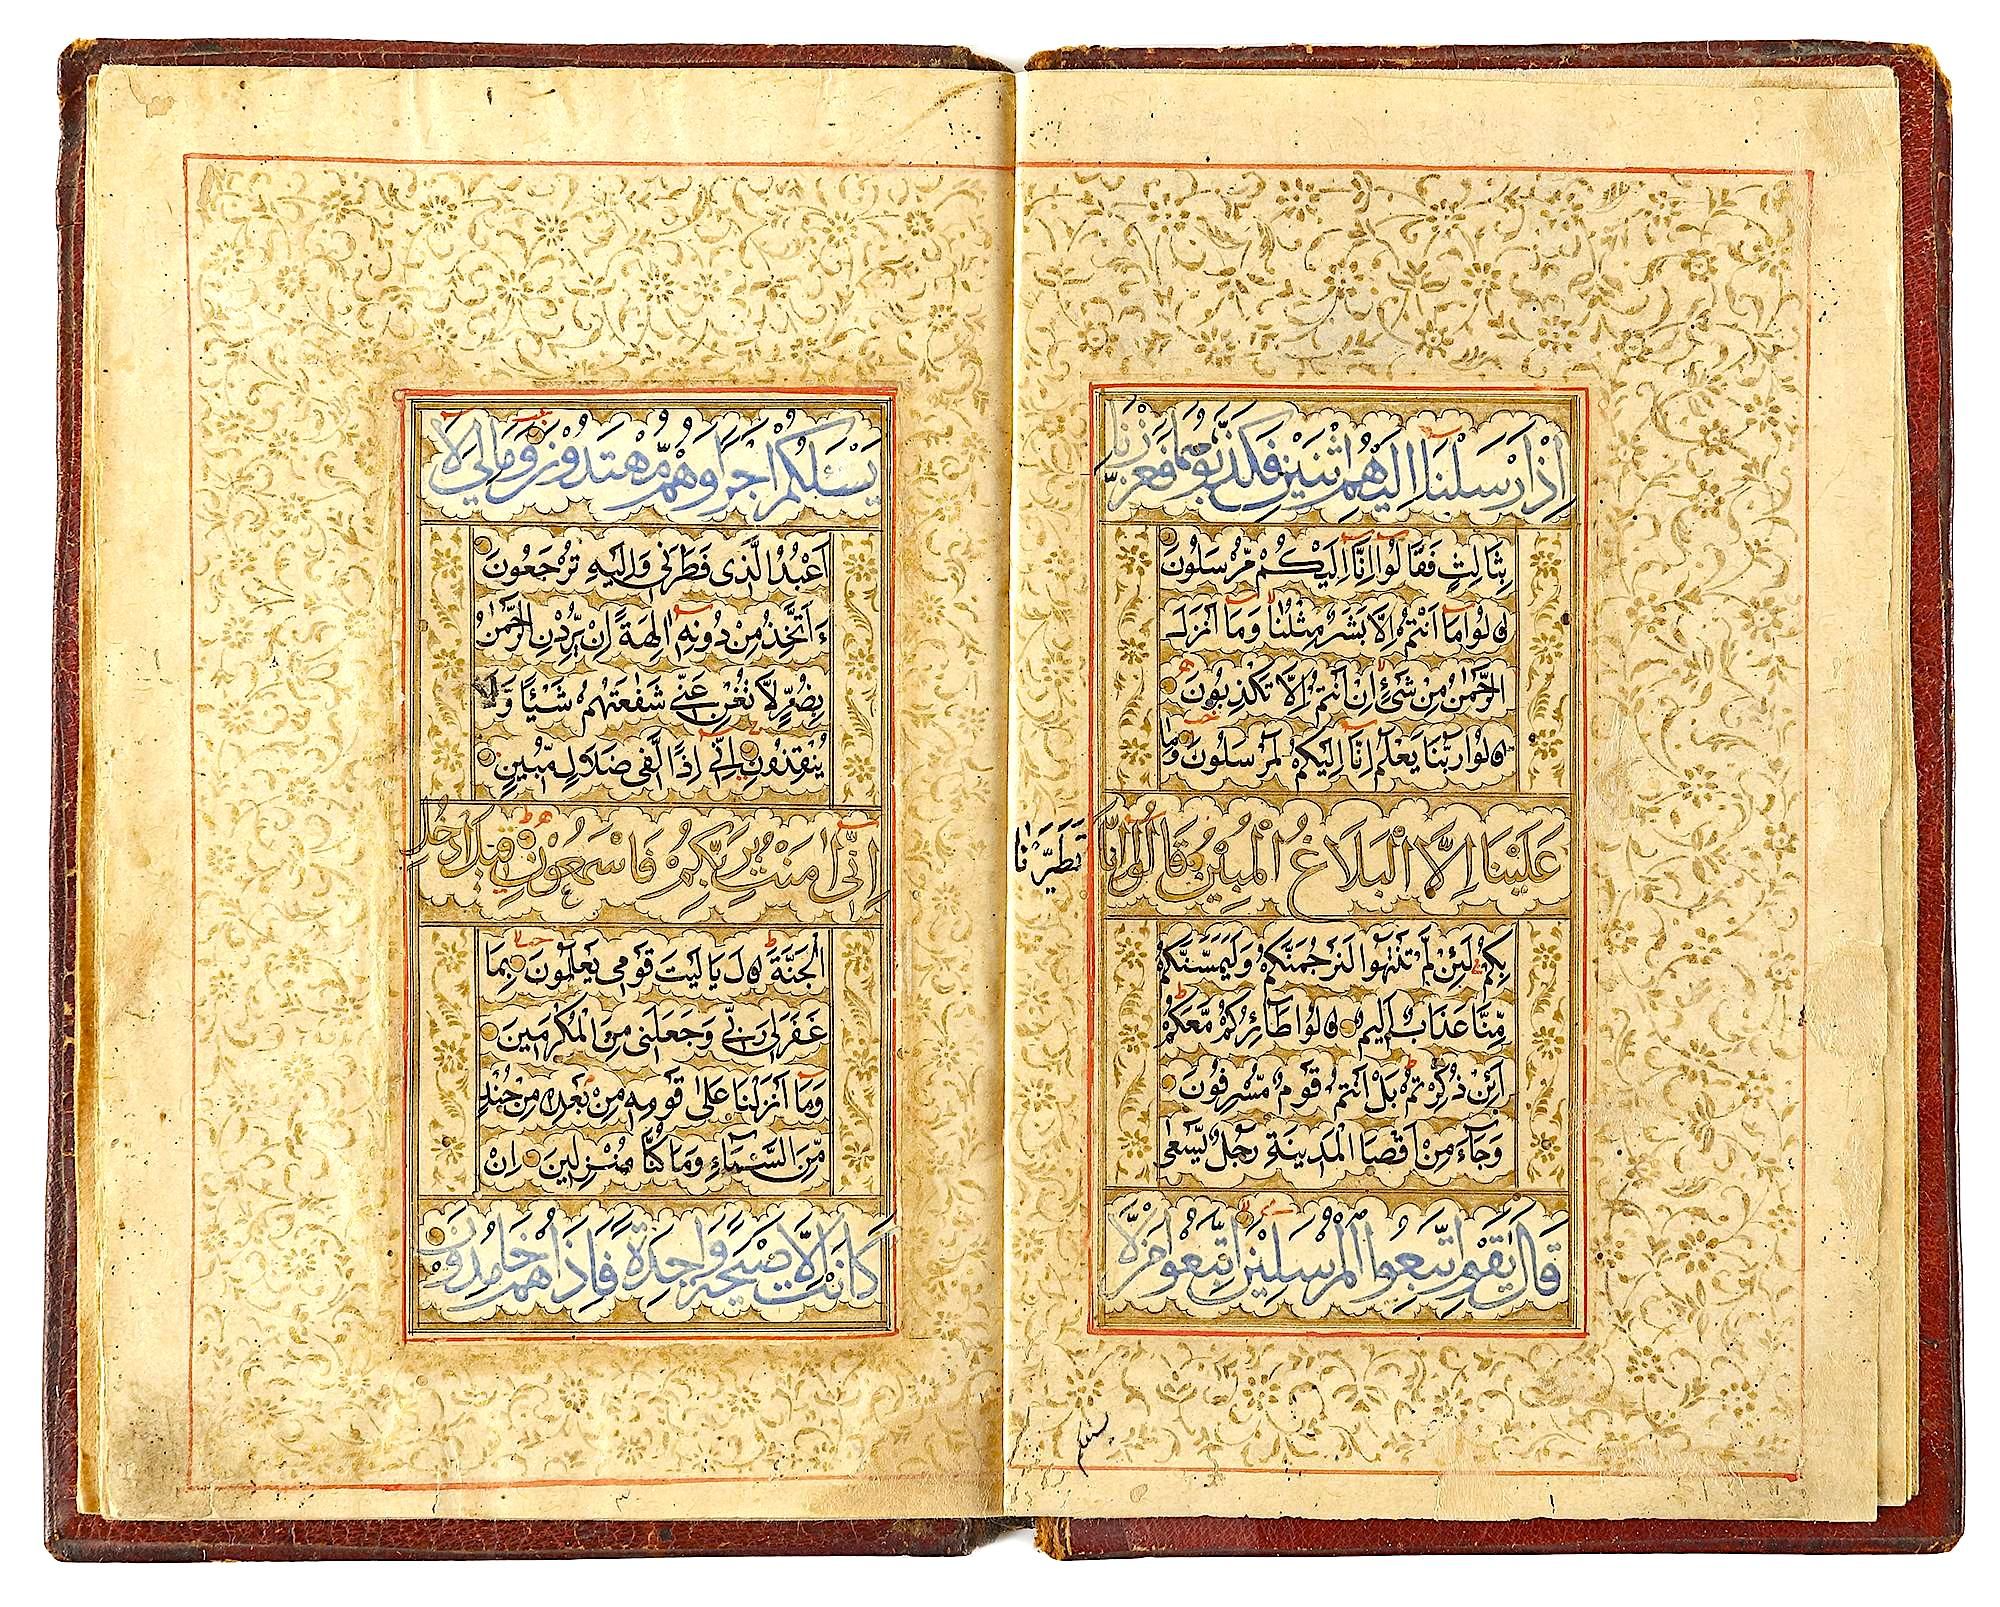 اِذْ اَرْسَلْنَا اِلَيْهِمُ اثْنَيْنِ فَكَذَّبُوْهُمَا فَعَزَّزْنَا
بِثَالِثٍ فَقَالُوْا اِنَّا اِلَيْكُمْ مُّرْسَلُوْنَ
قالُوا مَا اَنْتُمْ اِلَّا بَشَرٌ مِثْلُنَا وَمَا اَنْزَلَ
الرَّحْمٰنُ مِنْ شَىْءٍ اِنْ اَنْتُمْ اِلَّا تَكْذِبُوْنَ
قالُوا رَبُّنَا يَعْلَمُ اِنَّا اِلَيْكُمْ لَمُرْسَلُوْنَ وَمَا
عَلَيْنَا اِلَّا الْبَلَاغُ الْمُبِيْنُ قَالُوْا اِنَّا
تَطَيَّرْنَا
بِكُمْ لَئِنْ لَمْ تَنْتَهُوْا لَنَرْجُمَنَّكُمْ وَلَيَمَسَّنَّكُمْ
مِّنَّا عَذَابٌ اَلِيْمٌ قالُوا طَائِرُكُمْ مَّعَكُمْ
اَئِنْ ذُكِّرْتُمْ بَلْ اَنْتُمْ قَوْمٌ مُّسْرِفُوْنَ
وَجَاءَ مِنْ اَقْصَا الْمَدِيْنَةِ رَجُلٌ يَّسْعٰى
قَالَ يٰقَوْمِ اتَّبِعُوا الْمُرْسَلِيْنَ اتَّبِعُوْا مَنْ لَّا
يَسْـَٔلُكُمْ اَجْرًا وَهُمْ مُّهْتَدُوْنَ وَمَا لِيَ لَا
اَعْبُدُ الَّذِى فَطَرَنِى وَاِلَيْهِ تُرْجَعُوْنَ
ءَاَتَّخِذُ مِنْ دُوْنِهٖ اٰلِهَةً اِنْ يُّرِدْنِ الرَّحْمٰنُ
بِضُرٍّ لَّا تُغْنِ عَنِّى شَفٰعَتُهُمْ شَيْـًٔا وَّلَا
يُنْقِذُوْنِ اِنِّى اِذًا لَّفِى ضَلَالٍ مُّبِيْنٍ
اِنِّى اٰمَنْتُ بِرَبِّكُمْ فَاسْمَعُوْنِ قِيْلَ ادْخُلِ
الْجَنَّةَ قالَ يَا لَيْتَ قَوْمِى يَعْلَمُوْنَ بِمَا
غَفَرَلِى رَبِّى وَجَعَلَنِى مِنَ الْمُكْرَمِيْنَ
وَمَا اَنْزَلْنَا عَلٰى قَوْمِهٖ مِنْ بَعْدِهٖ مِنْ جُنْدٍ
مِّنَ السَّمَاءِ وَمَا كُنَّا مُنْزِلِيْنَ اِنْ
كَانَتْ اِلَّا صَيْحَةً وَاحِدَةً فَاِذَا هُمْ خَامِدُوْنَ